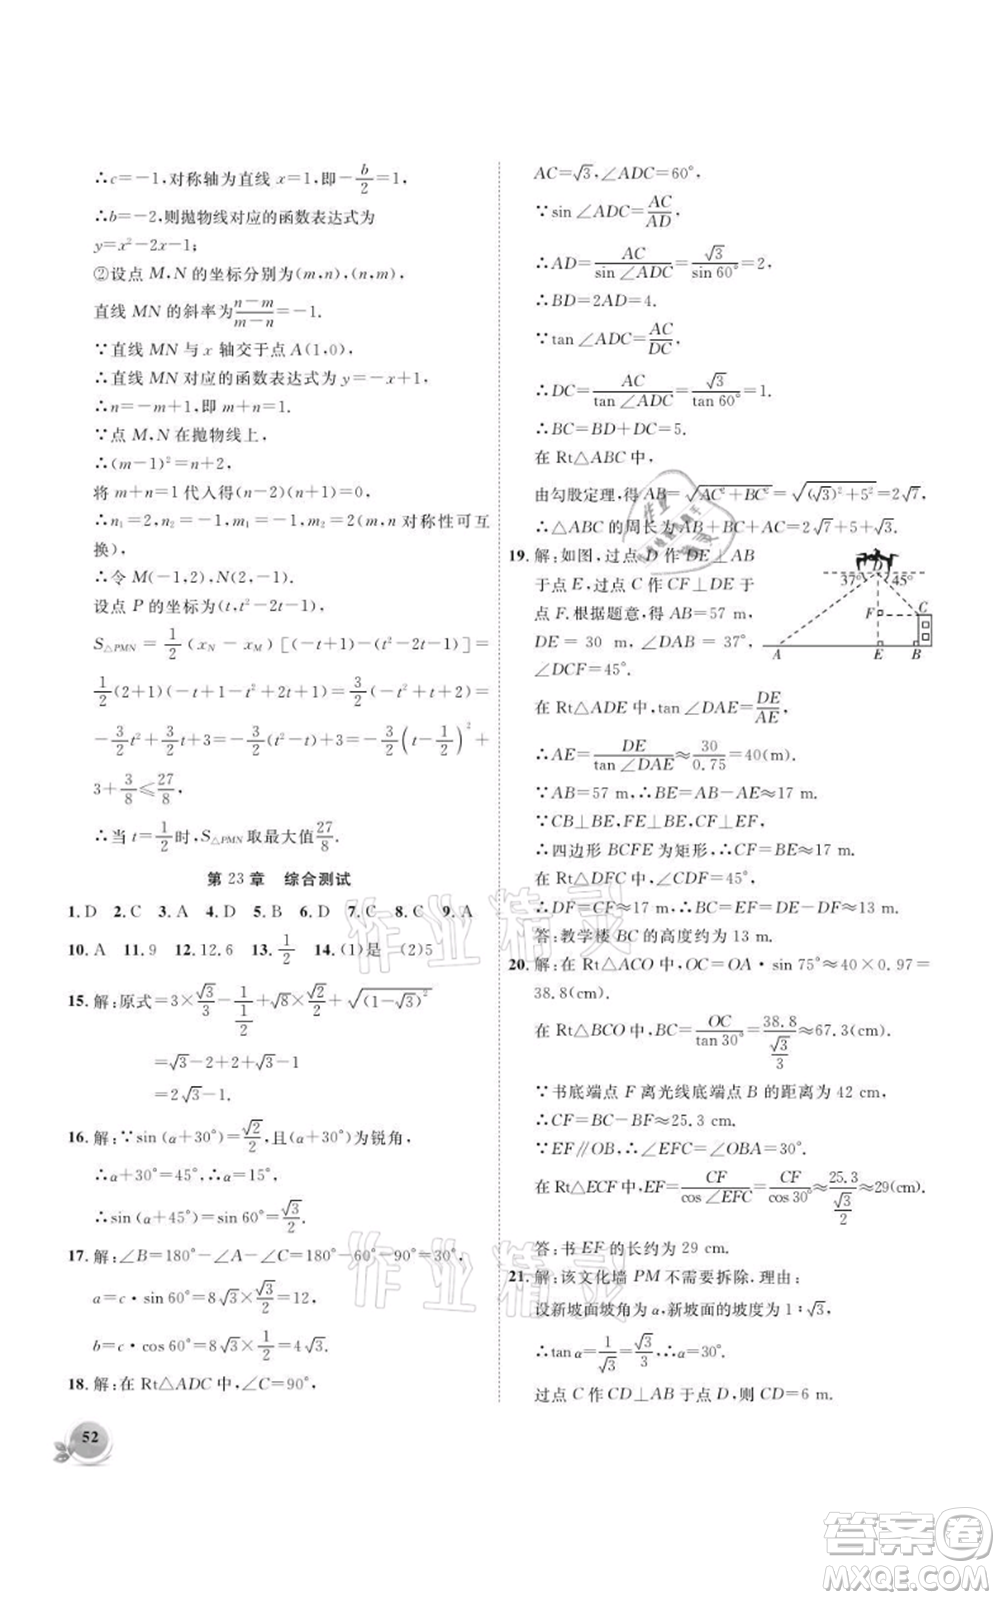 ∴c=−1,对称轴为直线 x=1,即−b/2=1,
∴b=−2,则抛物线对应的函数表达式为
y=x²−2x−1;
②设点 M,N 的坐标分别为(m,n),(n,m),
直线 MN 的斜率为(n−m)/(m−n)=−1.
∵直线 MN 与 x 轴交于点 A(1,0),
∴直线 MN 对应的函数表达式为 y=−x+1,
∴n=−m+1,即 m+n=1.
∵点 M,N 在抛物线上,
∴(m−1)²=n+2,
将 m+n=1 代入得(n−2)(n+1)=0,
∴n₁=2,n₂=−1,m₁=−1,m₂=2(m,n 对称性可互
换),
∴令 M(−1,2),N(2,−1).
设点 P 的坐标为(t,t²−2t−1),
S△PMN=1/2(xN−xM)[(−t+1)−(t²−2t−1)]=
1/2(2+1)(−t+1−t²+2t+1)=3/2(−t²+t+2)=
−3/2t²+3/2t+3=−3/2(t²−t)+3=−3/2(t−1/2)²+
3+3/8≤27/8,
∴当 t=1/2时,S△PMN取最大值27/8.
第 23 章 综合测试
1. D 2. C 3. A 4. D 5. B 6. D 7. C 8. C 9. A
10. A 11. 9 12. 12.6 13. 1/2 14. (1)是 (2)5
15. 解:原式=3×√3/3−1/(1/2)+√8×√2/2+√(1−√3)²
=√3−2+2+√3−1
=2√3−1.
16. 解:∵sin(α+30°)=√2/2,且(α+30°)为锐角,
∴α+30°=45°,∴α=15°.
∴sin(α+45°)=sin 60°=√3/2.
17. 解:∠B=180°−∠A−∠C=180°−60°−90°=30°,
a=c·sin 60°=8√3×√3/2=12,
b=c·cos 60°=8√3×1/2=4√3.
18. 解:在 Rt△ADC 中,∠C=90°,
52
AC=√3,∠ADC=60°,
∵sin∠ADC=AC/AD,
∴AD=AC/sin∠ADC=√3/sin 60°=2,
∴BD=2AD=4.
∵tan∠ADC=AC/DC,
∴DC=AC/tan∠ADC=√3/tan 60°=1.
∴BC=BD+DC=5.
在 Rt△ABC 中,
由勾股定理,得 AB=√AC²+BC²=√(√3)²+5²=2√7,
∴△ABC 的周长为 AB+BC+AC=2√7+5+√3.
19. 解:如图,过点 D 作 DE⊥AB
于点 E,过点 C 作 CF⊥DE 于
点 F.根据题意,得 AB=57 m,
DE=30 m,∠DAB=37°,
∠DCF=45°.
D
37° 45°
F C
A E B
在 Rt△ADE 中,tan∠DAE=DE/AE,
∴AE=DE/tan∠DAE≈30/0.75=40(m).
∵AB=57 m,∴BE=AB−AE≈17 m.
∵CB⊥BE,FE⊥BE,CF⊥EF,
∴四边形 BCFE 为矩形,∴CF=BE≈17 m.
在 Rt△DFC 中,∠CDF=∠DCF=45°,
∴DF=CF=17 m,∴BC=EF=DE−DF≈13 m.
答:教学楼 BC 的高度约为 13 m.
20. 解:在 Rt△ACO 中,OC=OA·sin 75°≈40×0.97=
38.8(cm).
在 Rt△BCO 中,BC=OC/tan 30°≈38.8/(√3/3)≈67.3(cm).
∵书底端点 F 离光线底端点 B 的距离为 42 cm,
∴CF=BC−BF≈25.3 cm.
∵EF∥OB,∴∠EFC=∠OBA=30°.
在 Rt△ECF 中,EF=CF/cos∠EFC=CF/cos 30°≈25.3/(√3/2)≈29(cm).
答:书 EF 的长约为 29 cm.
21. 解:该文化墙 PM 不需要拆除.理由:
设新坡面坡角为 α,新坡面的坡度为 1∶√3,
∴tan α=1/√3=√3/3,∴α=30°.
过点 C 作 CD⊥AB 于点 D,则 CD=6 m.
作业精灵
作业精灵
答案卷
MXQE.COM